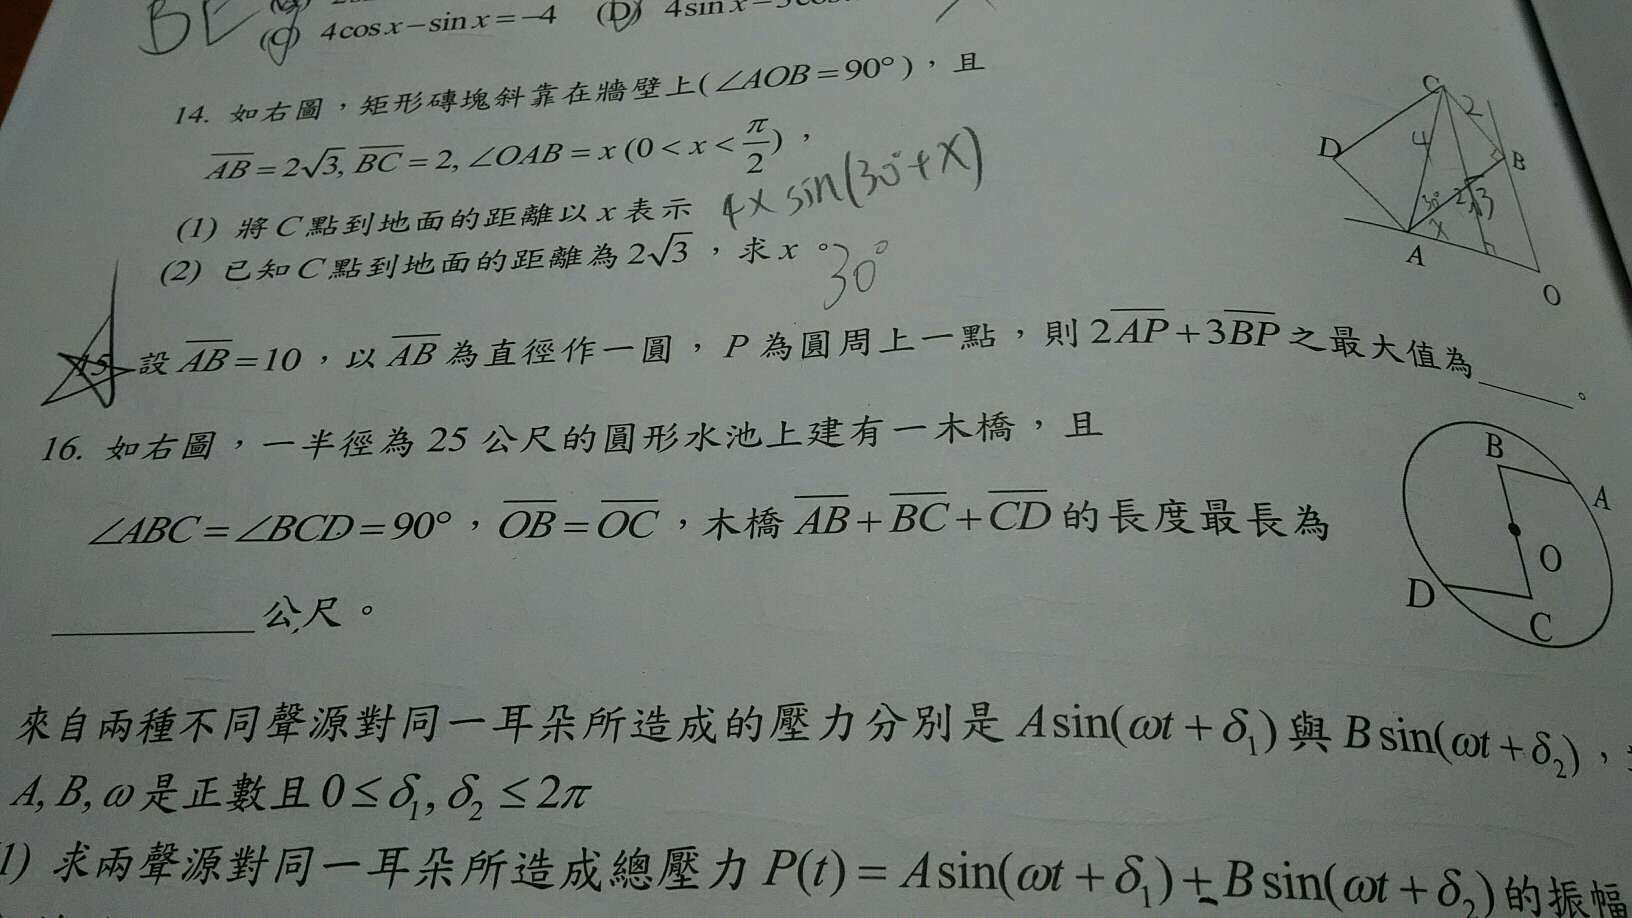 BC
(C) 4cosx−sinx=−4 (D)
14. 如右圖，矩形磚塊斜靠在牆壁上(∠AOB=90°)，且
AB=2√3, BC=2, ∠OAB=x (0<x<π/2)，
(1) 將C點到地面的距離以x表示 4×sin(30°+x)
(2) 已知C點到地面的距離為2√3，求x。30°
C
2
4
D
B
30°
2√3
x
A
O
15. 設AB=10，以AB為直徑作一圓，P為圓周上一點，則2AP+3BP之最大值為____。
16. 如右圖，一半徑為25公尺的圓形水池上建有一木橋，且
∠ABC=∠BCD=90°，OB=OC，木橋AB+BC+CD的長度最長為
____公尺。
B
A
O
D
C
來自兩種不同聲源對同一耳朵所造成的壓力分別是Asin(ωt+δ₁)與Bsin(ωt+δ₂)，
A, B, ω是正數且0≤δ₁, δ₂≤2π
1) 求兩聲源對同一耳朵所造成總壓力P(t)=Asin(ωt+δ₁)+Bsin(ωt+δ₂)的振幅